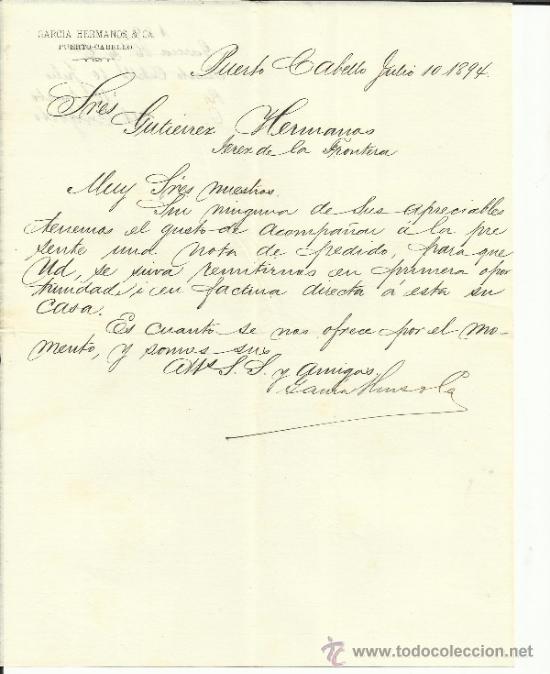 GARCIA HERMANOS, & CA.
PUERTO-CABELLO
Puerto Cabello Julio 10 1894.
Sres
Gutierrez Hermanos
Jerez de la Frontera
Muy Sres nuestros.
Sin ninguna de sus apreciables
tenemos el gusto de acompañar á la pre
sente una nota de pedido, para que
Ud, se sirva remitirnos en primera opor
tunidad i en factura directa á esta su
casa.
Es cuanto se nos ofrece por el mo-
mento, y somos sus
Atts S. S. y amigos.
Garcia Hnos & Ca
todocoleccion
www.todocoleccion.net